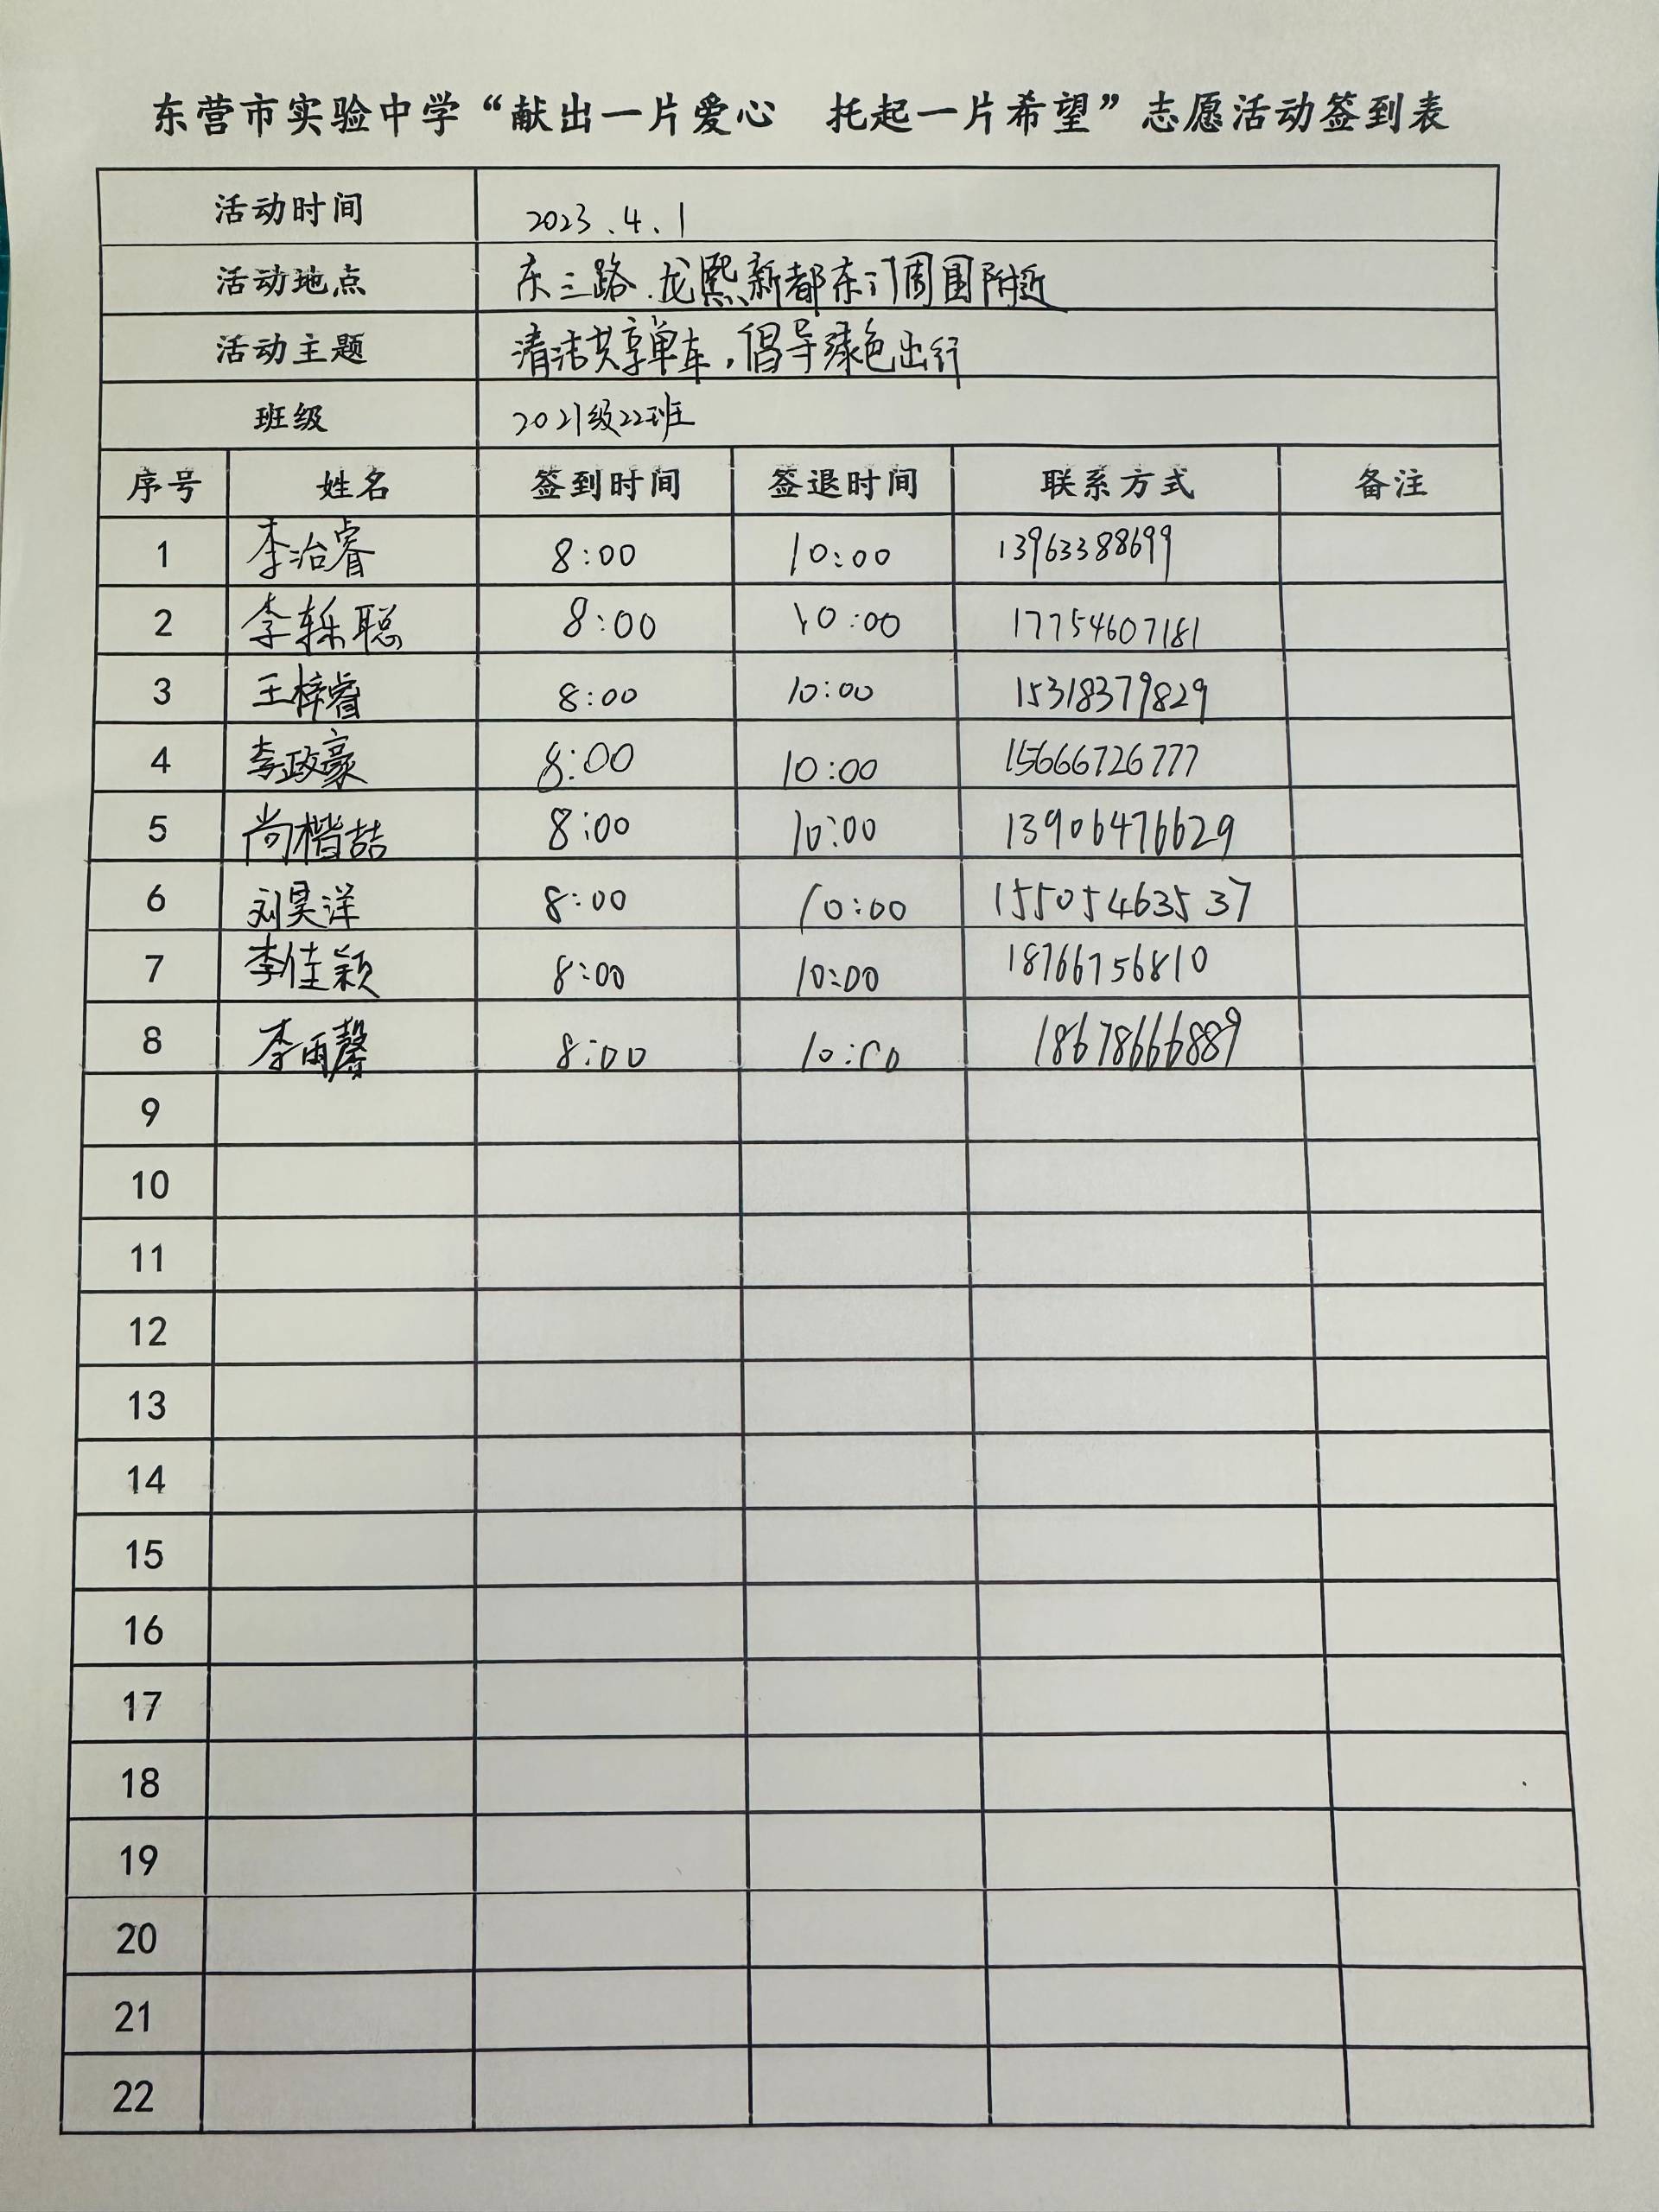 东营市实验中学“献出一片爱心 托起一片希望”志愿活动签到表
活动时间 2023.4.1
活动地点 东三路.龙熙新都东门周围附近
活动主题 清洁共享单车,倡导绿色出行
班级 2021级22班
序号 姓名 签到时间 签退时间 联系方式 备注
1 李治睿 8:00 10:00 13963388699
2 李轹聪 8:00 10:00 17754607181
3 王梓睿 8:00 10:00 15318379829
4 李政豪 8:00 10:00 15666726777
5 尚楷喆 8:00 10:00 13906476629
6 刘昊洋 8:00 10:00 15505463537
7 李佳颖 8:00 10:00 18766756810
8 李雨馨 8:00 10:00 18678666889
9
10
11
12
13
14
15
16
17
18
19
20
21
22